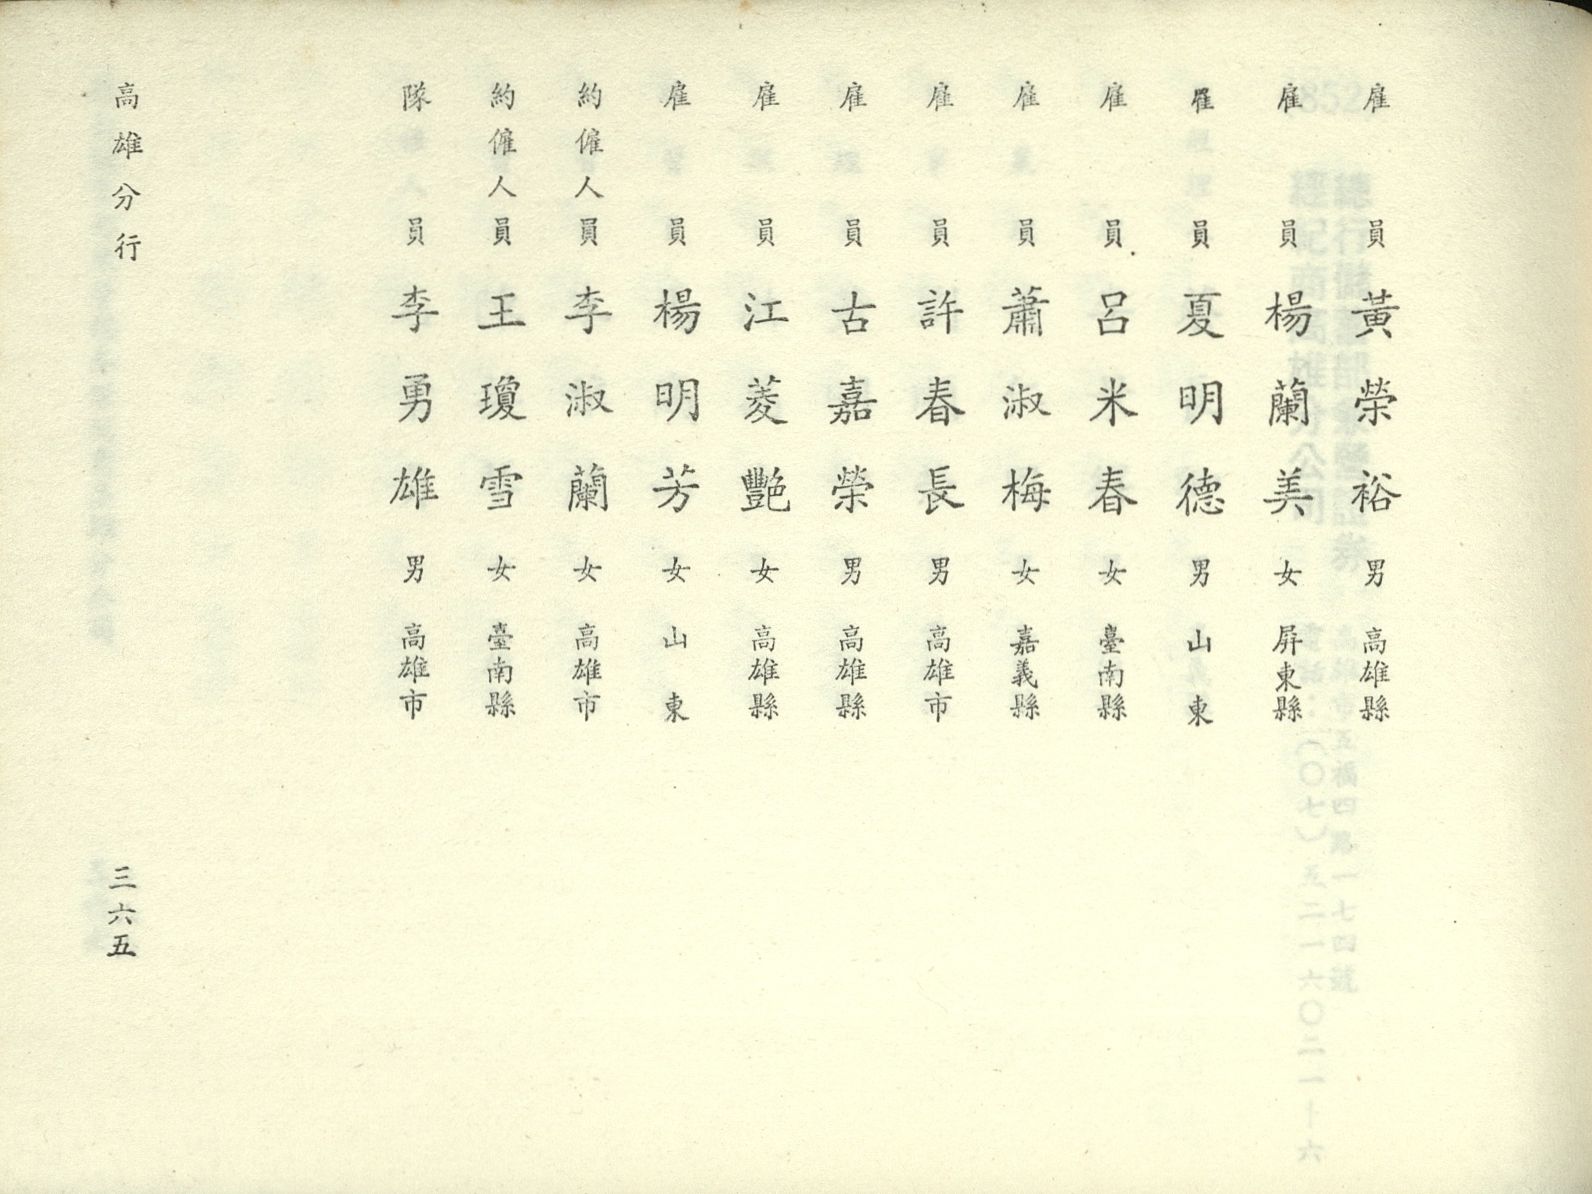 雇員 黃榮裕 男 高雄縣
雇員 楊蘭美 女 屏東縣
雇員 夏明德 男 山東
雇員 呂米春 女 臺南縣
雇員 蕭淑梅 女 嘉義縣
雇員 許春長 男 高雄市
雇員 古嘉榮 男 高雄縣
雇員 江菱艷 女 高雄縣
雇員 楊明芳 女 山東
約僱人員 李淑蘭 女 高雄市
約僱人員 王瓊雪 女 臺南縣
隊員 李勇雄 男 高雄市
高雄分行
三六五